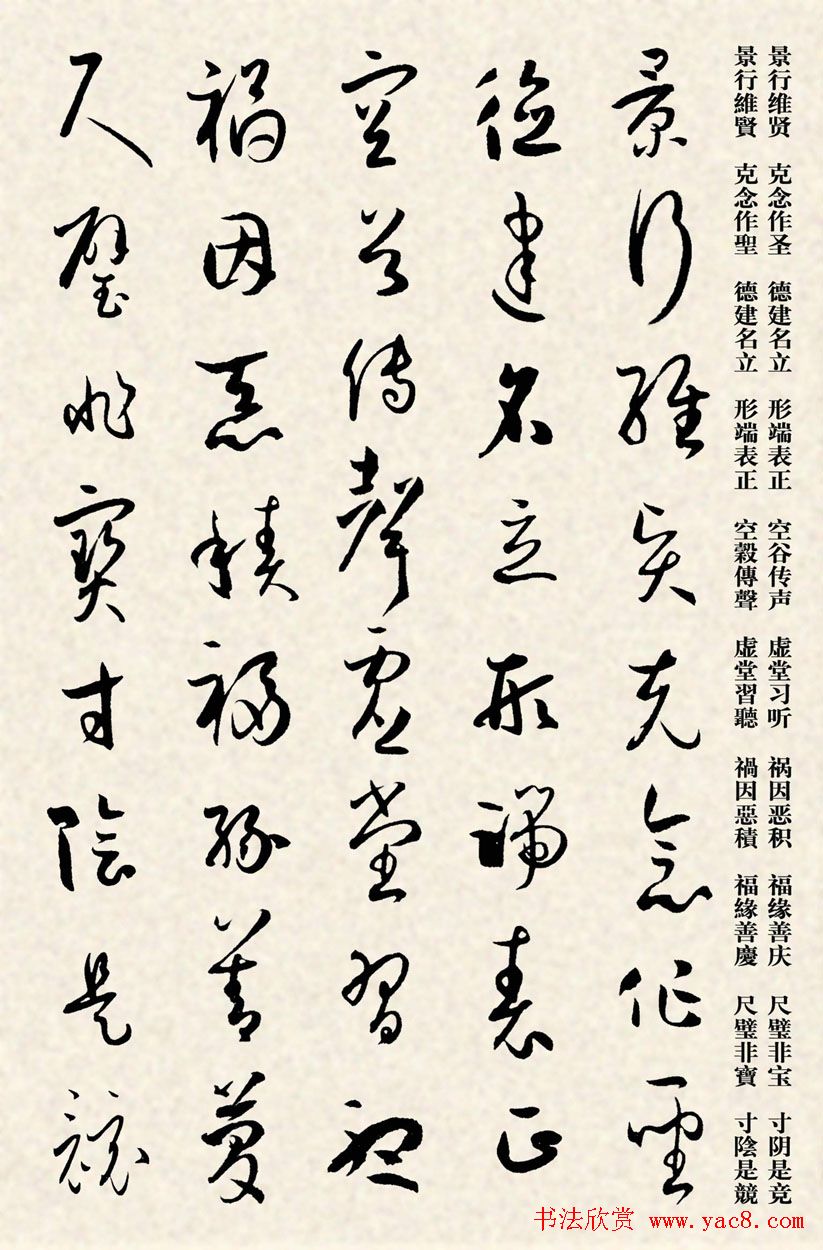 景行维贤 克念作圣 德建名立 形端表正 空谷传声 虚堂习听 祸因恶积 福缘善庆 尺璧非宝 寸阴是竞
景行維賢 克念作聖 德建名立 形端表正 空穀傳聲 虛堂習聽 禍因惡積 福緣善慶 尺璧非寶 寸陰是競
景行維賢克念作聖
德建名立形端表正
空谷傳聲虛堂習聽
禍因惡積福緣善慶
尺璧非寶寸陰是競
书法欣赏 www.yac8.com